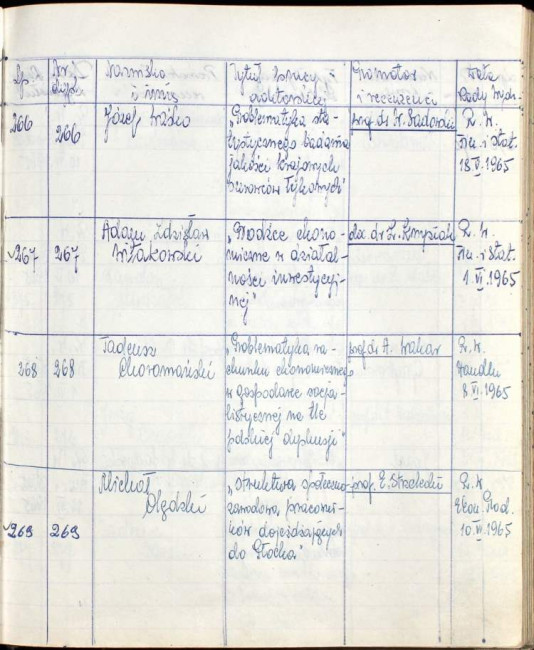 Lp. Nr dypl. Nazwisko i imię Tytuł pracy doktorskiej Promotor i recenzenci Data Rady Wydz.
266 266 Józef
"Problematyka sta-
tystycznego badania
jakości krajowych
surowców łykowych"
prof. dr W. Sadowski
R. W.
Fin. i Stat.
18.V.1965
267 267 Adam Zdzisław
Witakowski
"Bodźce ekono-
miczne w działal-
ności inwestycyj-
nej"
doc. dr
R. W.
Fin. i Stat.
1.VI.1965
268 268 Tadeusz
Choromański
"Problematyka ra-
chunku ekonomicznego
w gospodarce socja-
listycznej na tle
polskiej dyskusji"
prof. dr A. Wakar
R. W.
Handlu
8.VI.1965
269 269 Michał
Olędzki
"Struktura społeczno
zawodowa pracowni-
ków dojeżdżających
do Płocka"
prof. E. Strzelecki
R. W.
Ekon. Prod.
10.VI.1965